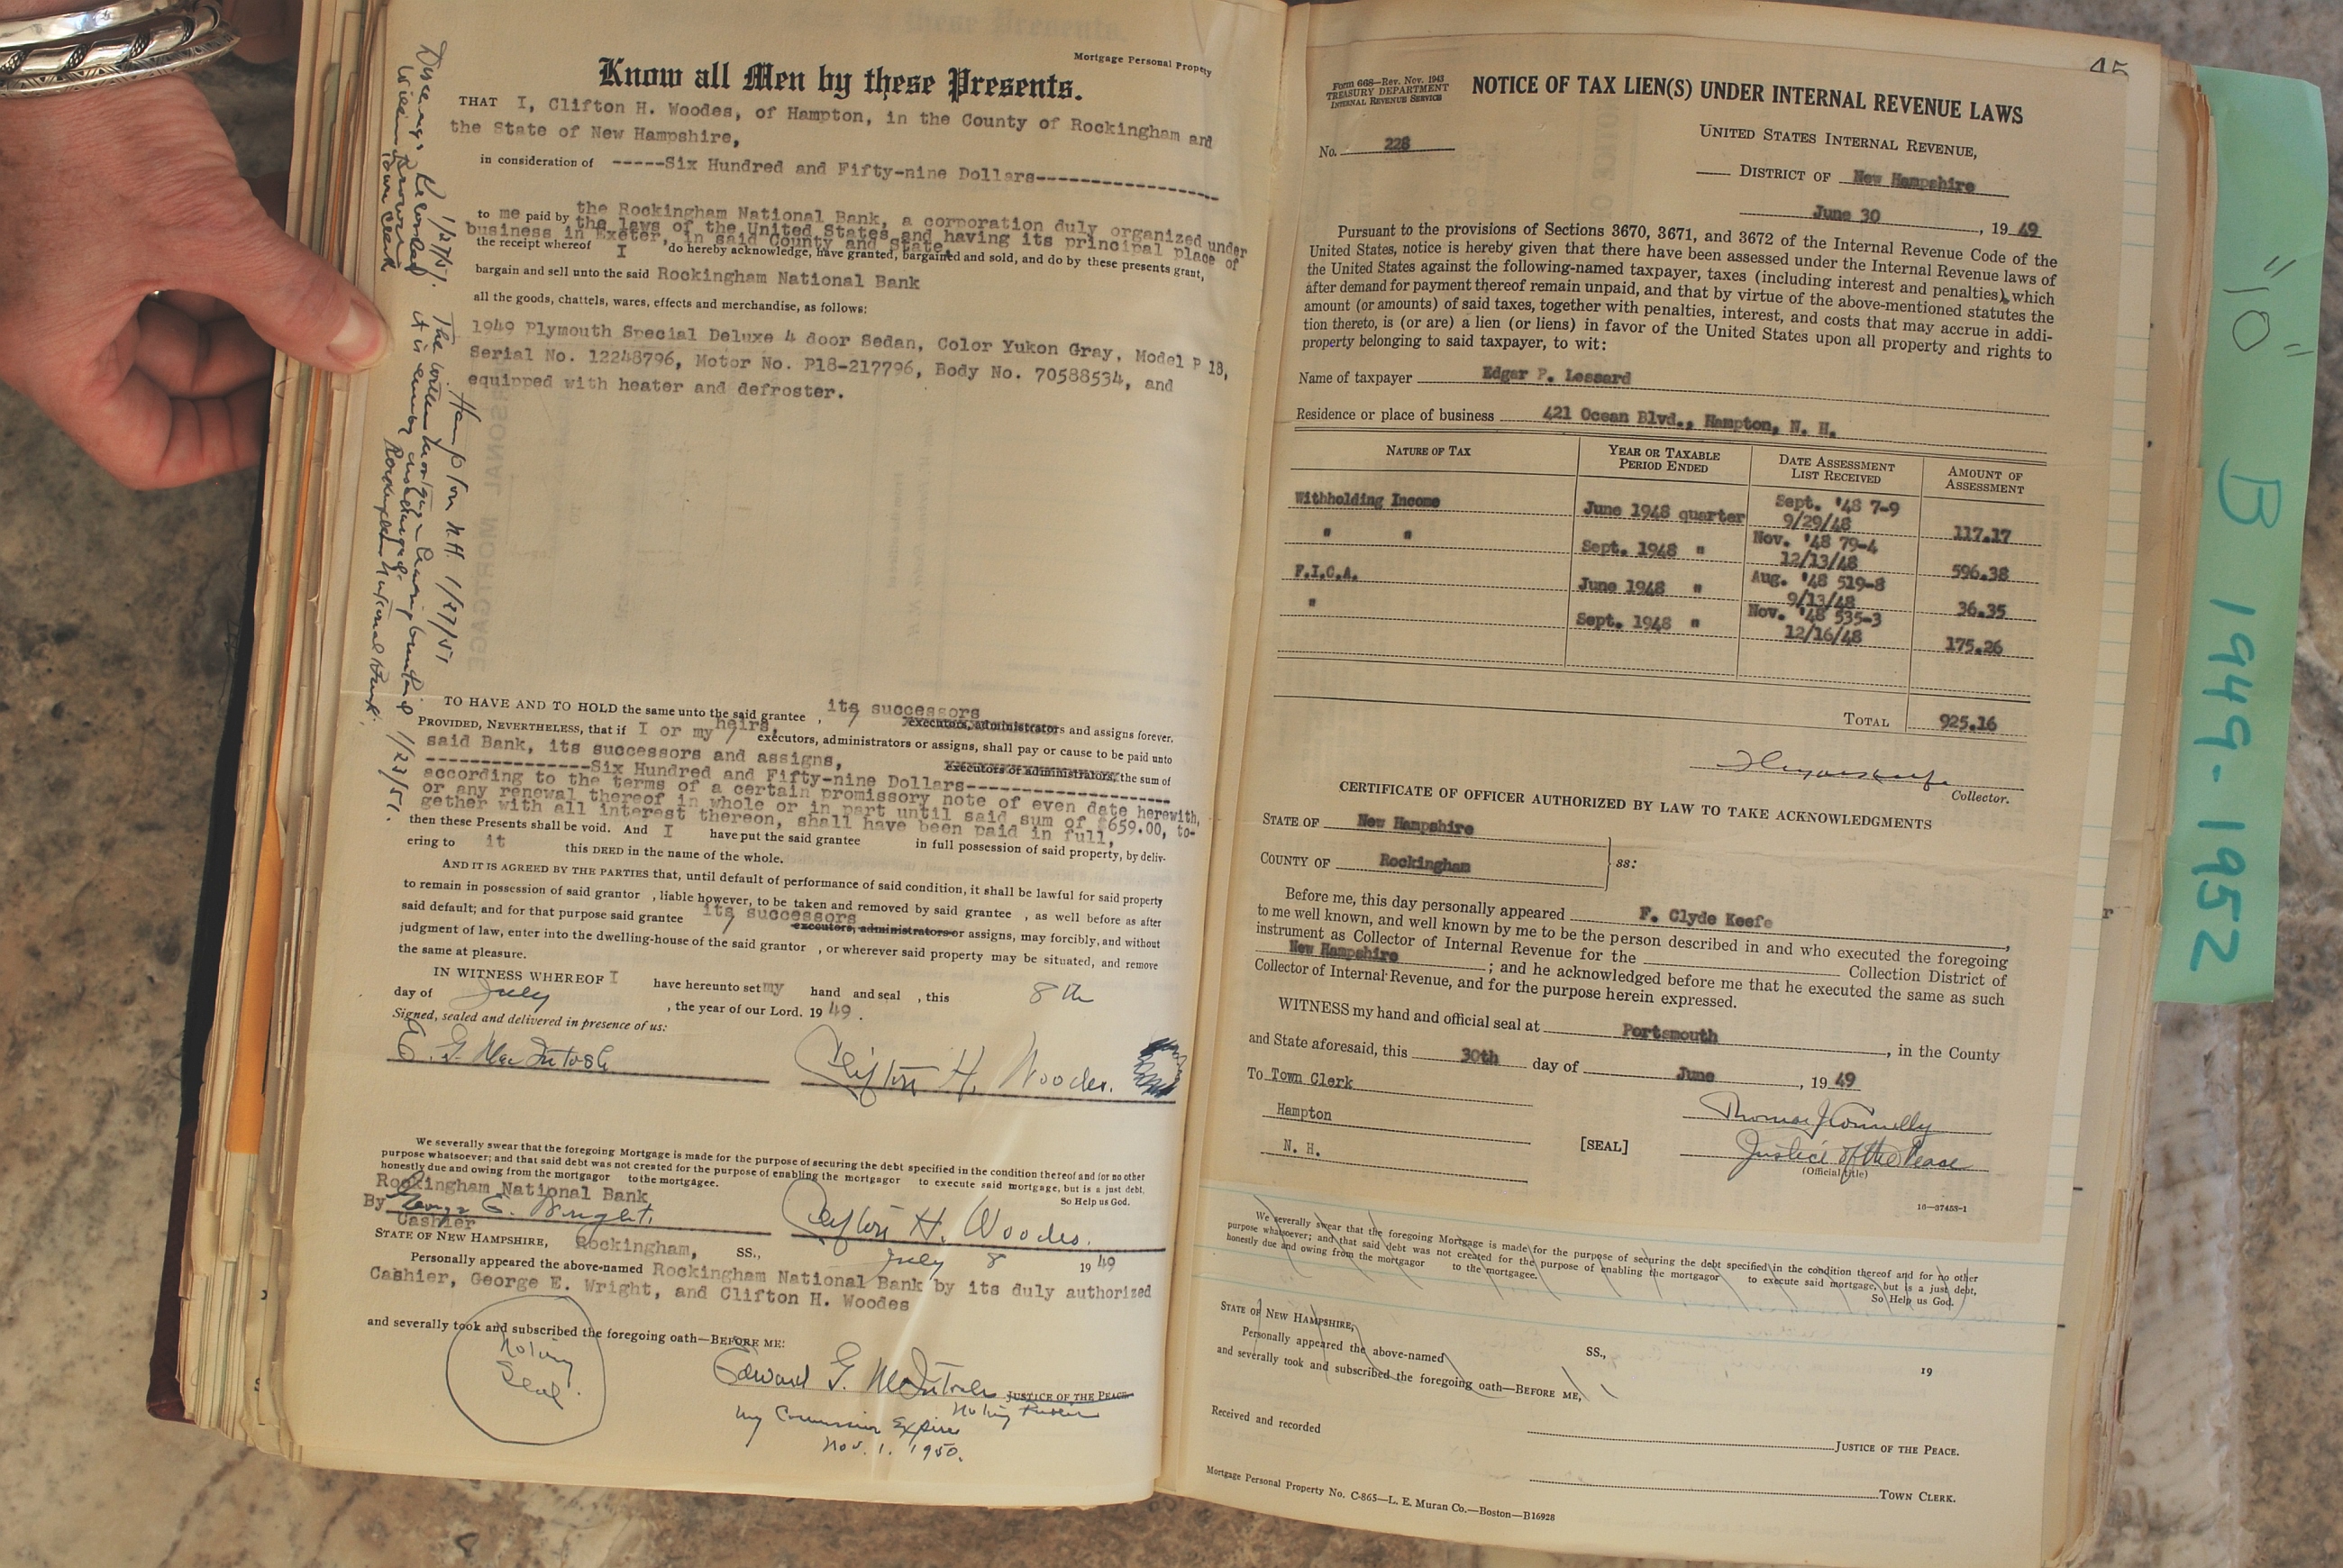 Mortgage Personal Propety
Know all Men by these Presents.
THAT I, Clifton H. Woodes, of Hampton, in the County of Rockingham and
the State of New Hampshire,
in consideration of -----Six Hundred and Fifty-nine Dollars------------------
to me paid by the Rockingham National Bank, a corporation duly organized under
the laws of the United States and having its principal place of
business in Exeter, in said County and State,
the receipt whereof I do hereby acknowledge, have granted, bargained and sold, and do by these presents grant,
bargain and sell unto the said Rockingham National Bank
all the goods, chattels, wares, effects and merchandise, as follows:
1949 Plymouth Special Deluxe 4 door Sedan, Color Yukon Gray, Model P 18,
Serial No. 12248796, Motor No. P18-217796, Body No. 70588534, and
equipped with heater and defroster.
TO HAVE AND TO HOLD the same unto the said grantee , its successors executors, administrators and assigns forever.
PROVIDED, NEVERTHELESS, that if I or my heirs, executors, administrators or assigns, shall pay or cause to be paid unto
said Bank, its successors and assigns, executors or administrators, the sum of
---------------Six Hundred and Fifty-nine Dollars--------------------
according to the terms of a certain promissory note of even date herewith,
or any renewal thereof in whole or in part until said sum of $659.00, to-
gether with all interest thereon, shall have been paid in full,
then these Presents shall be void. And I have put the said grantee in full possession of said property, by deliv-
ering to it this DEED in the name of the whole.
AND IT IS AGREED BY THE PARTIES that, until default of performance of said condition, it shall be lawful for said property
to remain in possession of said grantor , liable however, to be taken and removed by said grantee , as well before as after
said default; and for that purpose said grantee its successors executors, administrators or assigns, may forcibly, and without
judgment of law, enter into the dwelling-house of the said grantor , or wherever said property may be situated, and remove
the same at pleasure.
IN WITNESS WHEREOF I have hereunto set my hand and seal , this 8th
day of July , the year of our Lord. 19 49 .
Signed, sealed and delivered in presence of us:
E. G. MacIntosh Clifton H. Woodes.
We severally swear that the foregoing Mortgage is made for the purpose of securing the debt specified in the condition thereof and for no other
purpose whatsoever; and that said debt was not created for the purpose of enabling the mortgagor to execute said mortgage, but is a just debt,
honestly due and owing from the mortgagor to the mortgagee.
So Help us God.
Rockingham National Bank
By George E. Wright. Clifton H. Woodes.
Cashier
STATE OF NEW HAMPSHIRE, Rockingham, SS., July 8 19 49
Personally appeared the above-named Rockingham National Bank by its duly authorized
Cashier, George E. Wright, and Clifton H. Woodes
and severally took and subscribed the foregoing oath—BEFORE ME:
Notary
Seal.
Edward G. MacIntosh JUSTICE OF THE PEACE
Notary Public
My Commission Expires
Nov. 1. 1950.
Discharge Recorded 1/27/51.
Town Clerk
Hampton N.H. 1/27/51
The within mortgage having been paid
it is hereby discharged.
Rockingham National Bank.
45
Form 668—Rev. Nov. 1943
TREASURY DEPARTMENT
INTERNAL REVENUE SERVICE
NOTICE OF TAX LIEN(S) UNDER INTERNAL REVENUE LAWS
No. 228
UNITED STATES INTERNAL REVENUE,
DISTRICT OF New Hampshire
June 30 , 19 49
Pursuant to the provisions of Sections 3670, 3671, and 3672 of the Internal Revenue Code of the
United States, notice is hereby given that there have been assessed under the Internal Revenue laws of
the United States against the following-named taxpayer, taxes (including interest and penalties), which
after demand for payment thereof remain unpaid, and that by virtue of the above-mentioned statutes the
amount (or amounts) of said taxes, together with penalties, interest, and costs that may accrue in addi-
tion thereto, is (or are) a lien (or liens) in favor of the United States upon all property and rights to
property belonging to said taxpayer, to wit:
Name of taxpayer Edgar P. Lessard
Residence or place of business 421 Ocean Blvd., Hampton, N. H.
NATURE OF TAX YEAR OR TAXABLE PERIOD ENDED DATE ASSESSMENT LIST RECEIVED AMOUNT OF ASSESSMENT
Withholding Income June 1948 quarter Sept. '48 7-9 9/29/48 117.17
" " Sept. 1948 " Nov. '48 79-4 12/13/48 596.38
F.I.C.A. June 1948 " Aug. '48 519-8 9/13/48 36.35
" Sept. 1948 " Nov. '48 535-3 12/16/48 175.26
TOTAL 925.16
Collector.
CERTIFICATE OF OFFICER AUTHORIZED BY LAW TO TAKE ACKNOWLEDGMENTS
STATE OF New Hampshire
COUNTY OF Rockingham ss:
Before me, this day personally appeared F. Clyde Keefe ,
to me well known, and well known by me to be the person described in and who executed the foregoing
instrument as Collector of Internal Revenue for the Collection District of
New Hampshire ; and he acknowledged before me that he executed the same as such
Collector of Internal Revenue, and for the purpose herein expressed.
WITNESS my hand and official seal at Portsmouth , in the County
and State aforesaid, this 30th day of June , 19 49
To Town Clerk
Hampton
N. H.
[SEAL]
Thomas J Connelly
Justice of the Peace
(Official title)
16—37453-1
We severally swear that the foregoing Mortgage is made for the purpose of securing the debt specified in the condition thereof and for no other
purpose whatsoever; and that said debt was not created for the purpose of enabling the mortgagor to execute said mortgage, but is a just debt,
honestly due and owing from the mortgagor to the mortgagee.
So Help us God.
STATE OF NEW HAMPSHIRE, SS., 19
Personally appeared the above-named
and severally took and subscribed the foregoing oath—BEFORE ME,
JUSTICE OF THE PEACE.
Received and recorded
TOWN CLERK.
Mortgage Personal Property No. C-865—L. E. Muran Co.—Boston—B16928
"10" B 1949-1952